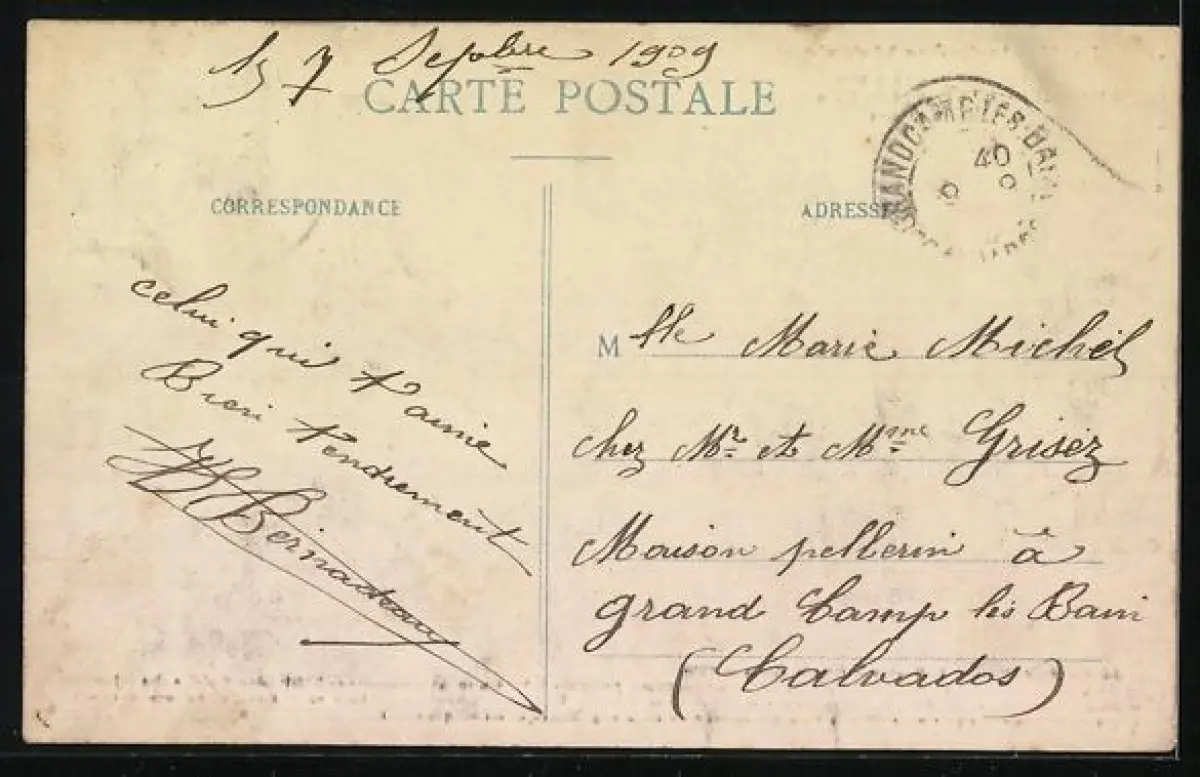 7 Septbre 1909
CARTE POSTALE
CORRESPONDANCE
ADRESSE
GRANDCAMP-LES-BAINS
40
celui qui t'aime
Bien tendrement
Bernadeau
Mlle Marie Michel
chez Mr et Mme Grisez
Maison pellerin à
grand Camp les Bain
(Calvados)